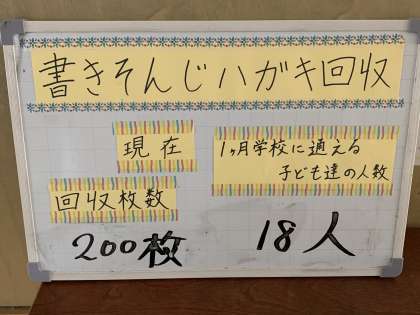 書きそんじハガキ回収
現在
回収枚数
200枚
1ヶ月学校に通える
子ども達の人数
18人